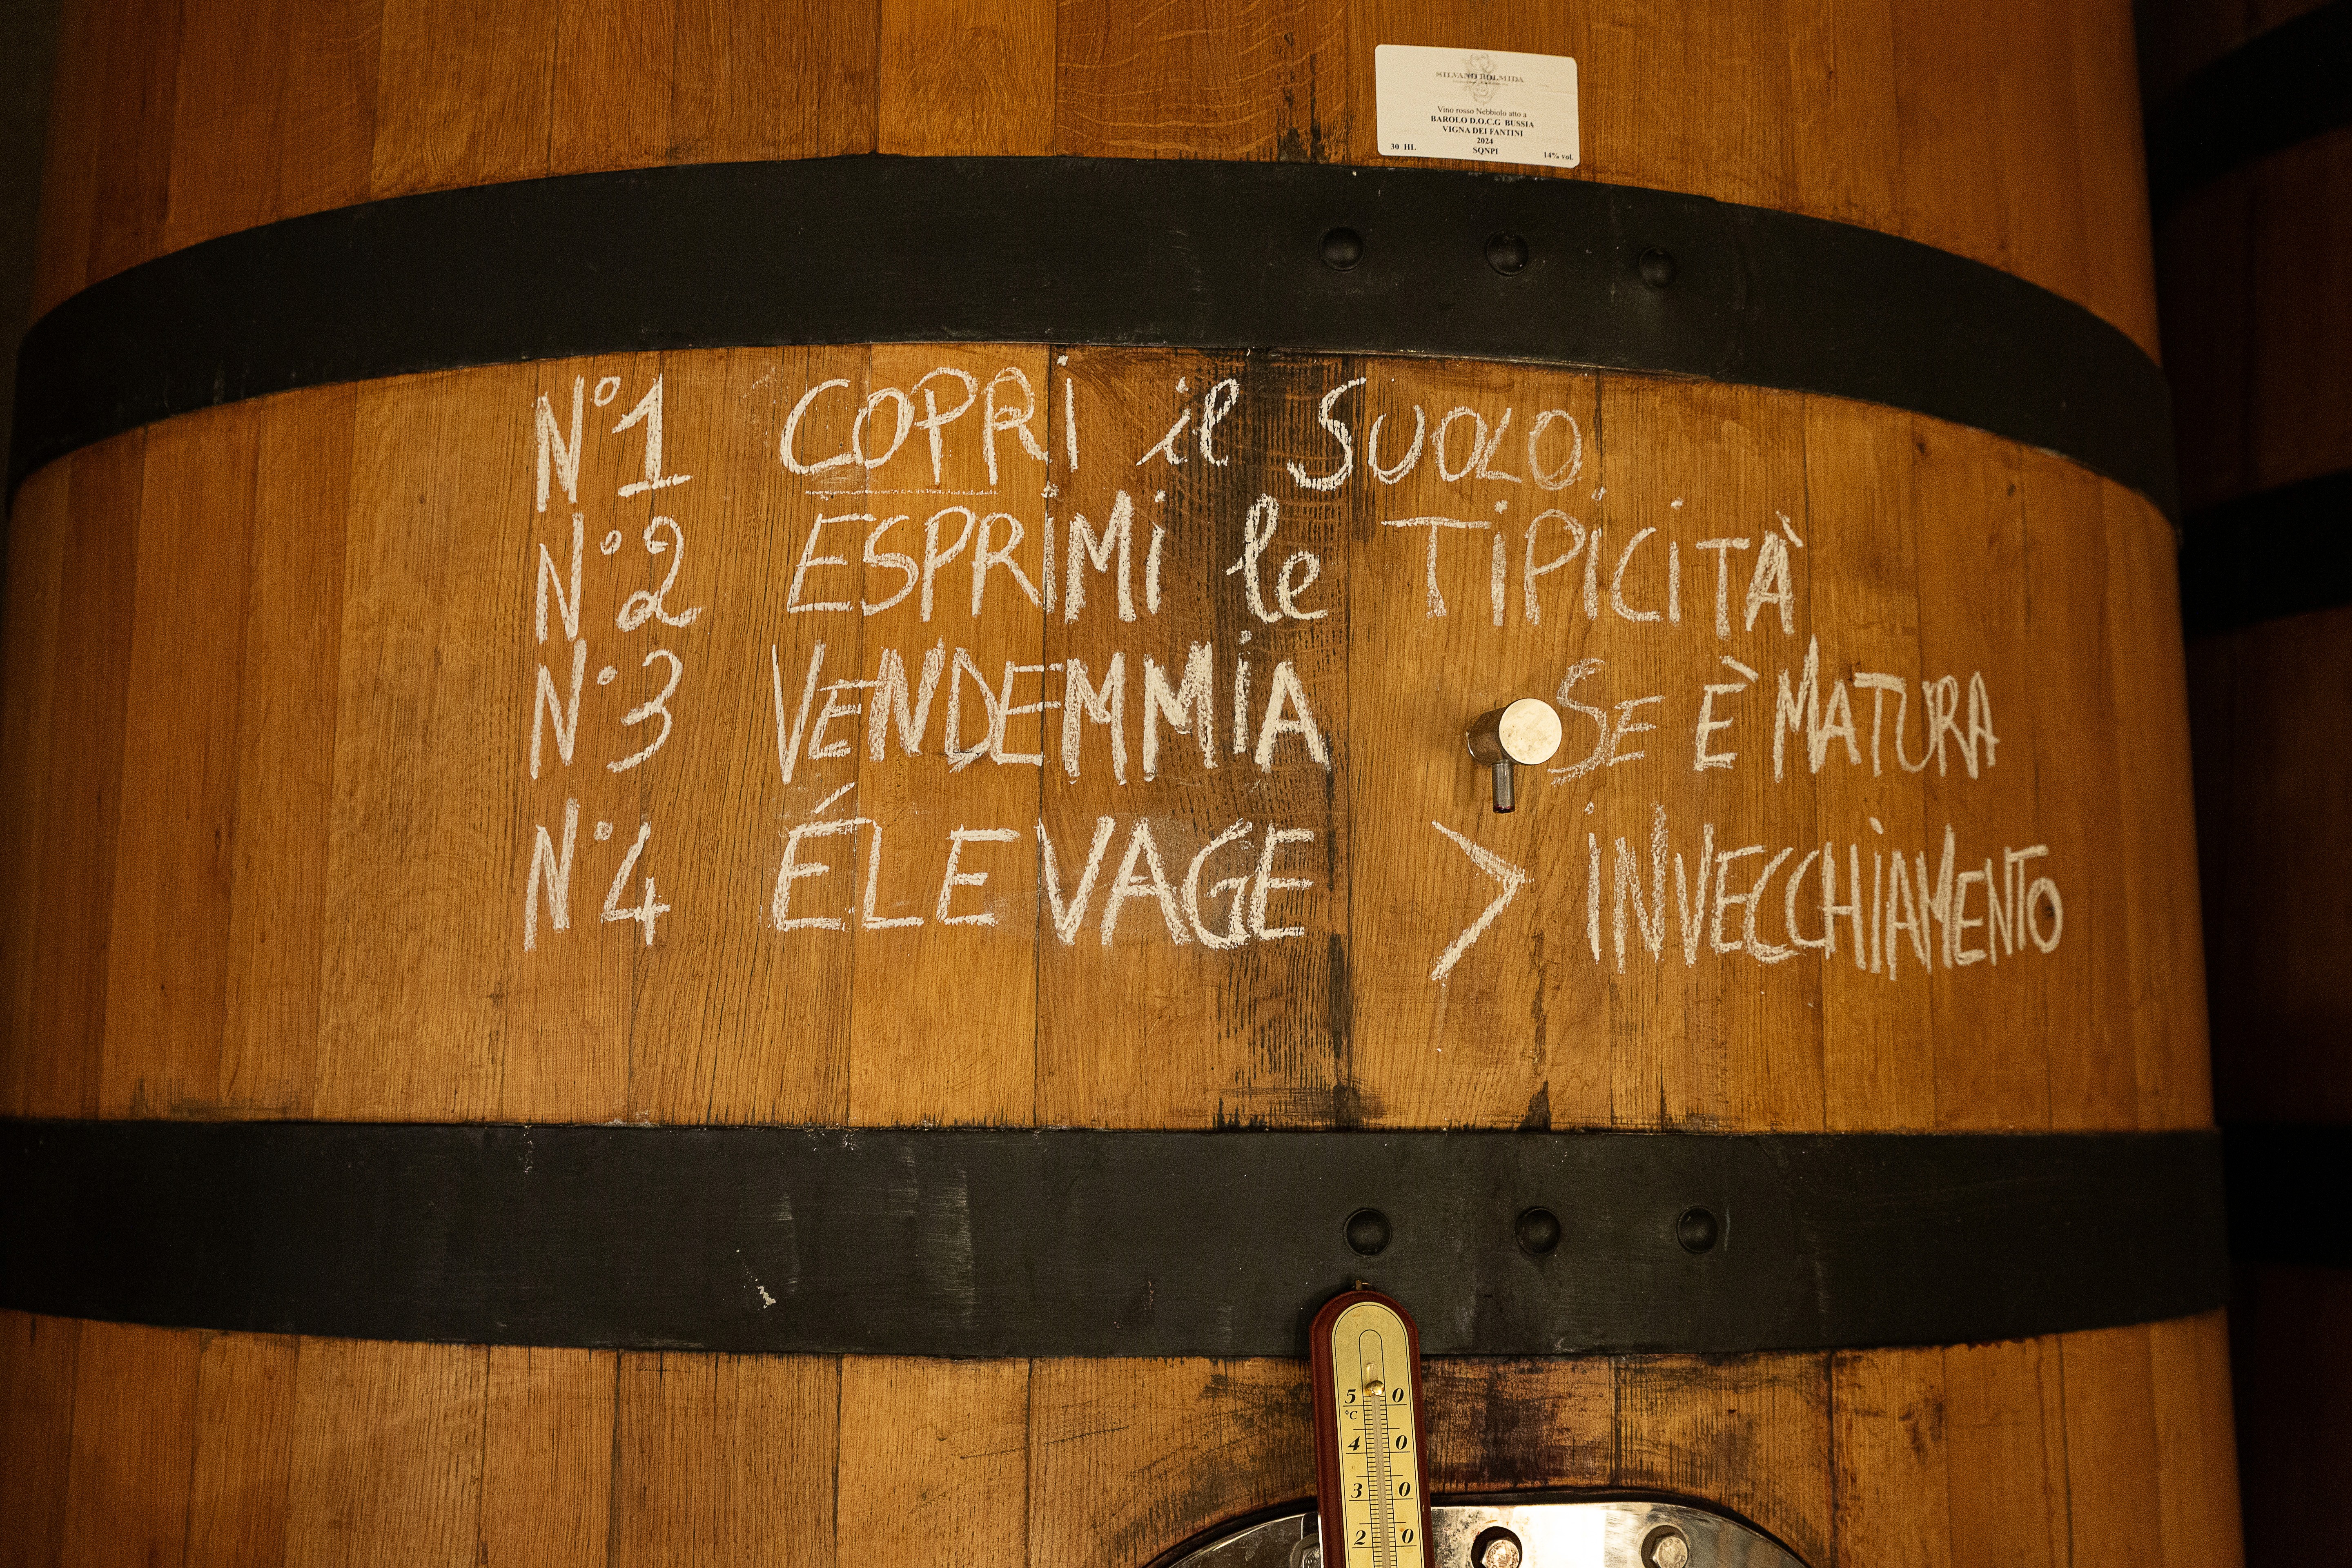 SILVANO BOLMIDA
Vino rosso Nebbiolo atto a
BAROLO D.O.C.G BUSSIA
VIGNA DEI FANTINI
2024
30 HL SQNPI 14% vol.
N°1 COPRi il SUOLO
N°2 ESPRiMi le TiPiCiTÀ
N°3 VENDEMMiA SE È MATURA
N°4 ÉLEVAGE > iNVECCHiAMENTO
5 0
°C
4 0
3 0
2 0